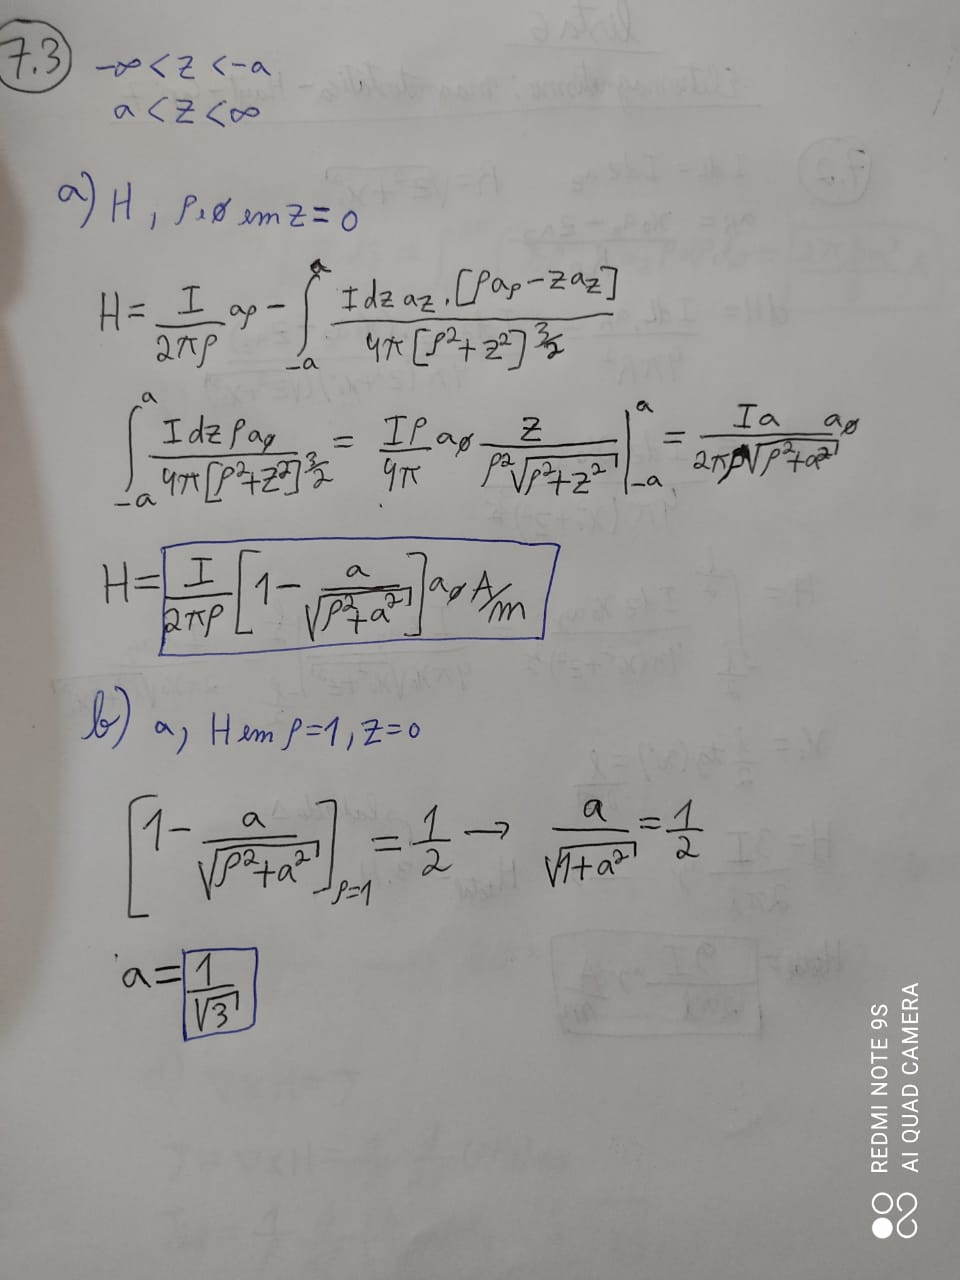 7.3 -∞ < z < -a
a < z < ∞
a) H, ρ e ø em z = 0
H = I/2πρ aρ - ∫_{-a}^{a} I dz az . [ρaρ - zaz] / 4π[ρ²+z²]^{3/2}
∫_{-a}^{a} I dz ρ aø / 4π[ρ²+z²]^{3/2} = Iρ/4π aø z/ρ²√(ρ²+z²) |_{-a}^{a} = Ia aø / 2πρ√(ρ²+a²)
H = I/2πρ [1 - a/√(ρ²+a²)] aø A/m
b) a, H em ρ=1, z=0
[1 - a/√(ρ²+a²)]_{ρ=1} = 1/2 → a/√(1+a²) = 1/2
a = 1/√3
REDMI NOTE 9S
AI QUAD CAMERA